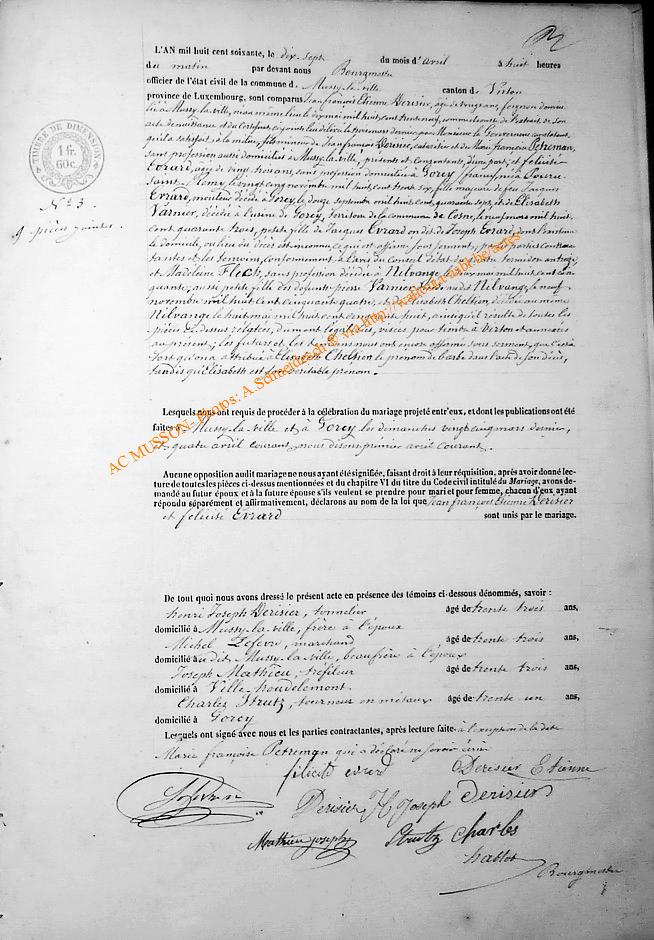 L'AN mil huit cent soixante, le dix-sept du mois d'avril à huit heures
du matin par devant nous Bourgmestre
officier de l'état civil de la commune d. Mussy-la-ville canton de Virton
province de Luxembourg, sont comparus Jean françois Etienne Derisier, âgé de vingt ans,
à Mussy-la-ville,
qu'il a satisfait à la milice, fils mineur de Jean françois Derisier, et de Marie françoise Petreman,
sans profession aussi domiciliés à Mussy-la-ville, présents et consentants, d'une part, et félicité
Evrard, âgée de vingt trois ans, sans profession domiciliée à Gorcy (france) née à
Saint-Remy, le vingt cinq novembre mil huit cent trente six, fille majeure de feu Jacques
Evrard, mouleur décédé à Gorcy, le douze septembre mil huit cent quarante sept, et de Elisabeth
Varnier, décédée à l'usine de Gorcy, territoire de la commune de Cosne, le neuf mars mil huit
cent quarante trois, petite fille de Jacques Evrard ou dit de Joseph Evrard, dont l'on ignore
le domicile, ou lieu du décès est inconnu, ce qui est affirmé sous serment, par les parties contrac-
tantes et les témoins, conformément à l'avis du Conseil d'état du
et Madeleine Floch, sans profession décédée à Nilvange mil huit cent cin-
quante, aussi petite fille des défunts pierre Varnier décédé audit Nilvange, le neuf
novembre mil huit cent cinquante quatre, et de Elisabeth Chelsien, décédée au même
Nilvange le huit mai mil huit cent vingt huit, ainsi qu'il résulte de toutes les
pièces ci-dessus relatées, dument légalisées, visées pour timbre à Virton et annexées
au présent; les futurs et les témoins nous ont encore affirmé sous serment, que c'est à
tort qu'on a attribué à Elisabeth Chelsien le prénom de barbe dans l'acte de son décès,
tandis qu'Elisabeth est son véritable prénom.
TIMBRE DE DIMENSION
1 fr.
60 c.
N° 3.
9 pièces jointes
Lesquels nous ont requis de procéder à la célébration du mariage projeté entr'eux, et dont les publications ont été
faites à Mussy-la-ville et à Gorcy les dimanches vingt cinq mars dernier,
et premier avril courant.
Aucune opposition audit mariage ne nous ayant été signifiée, faisant droit à leur réquisition, après avoir donné lec-
ture de toutes les pièces ci-dessus mentionnées et du chapitre VI du titre du Code civil intitulé du Mariage, avons de-
mandé au futur époux et à la future épouse s'ils veulent se prendre pour mari et pour femme, chacun d'eux ayant
répondu séparément et affirmativement, déclarons au nom de la loi que Jean françois Etienne Derisier
et félicité Evrard sont unis par le mariage.
De tout quoi nous avons dressé le présent acte en présence des témoins ci-dessous dénommés, savoir :
Henri Joseph Derisier, tonnelier âgé de trente trois ans,
domicilié à Mussy-la-ville, frère à l'époux
Michel Lefevre, marchand âgé de trente trois ans,
domicilié audit Mussy-la-ville, beaufrère à l'époux
Joseph Mathieu, tréfileur âgé de trente trois ans,
domicilié à Ville-houdelemont.
Charles Strutz, tourneur en métaux âgé de trente un ans,
domicilié à Gorcy
Lesquels ont signé avec nous et les parties contractantes, après lecture faite. à l'exception de la dite
Marie françoise Petreman qui a déclaré ne savoir écrire
félicité evrard Derisier Etienne
Lefevre Derisier H Joseph Derisier
Mathieu joseph Strutz Charles
Bourgmestre
AC MUSSON- Props: A.Schneitzach © via http://wallonia.mabi.be/actes